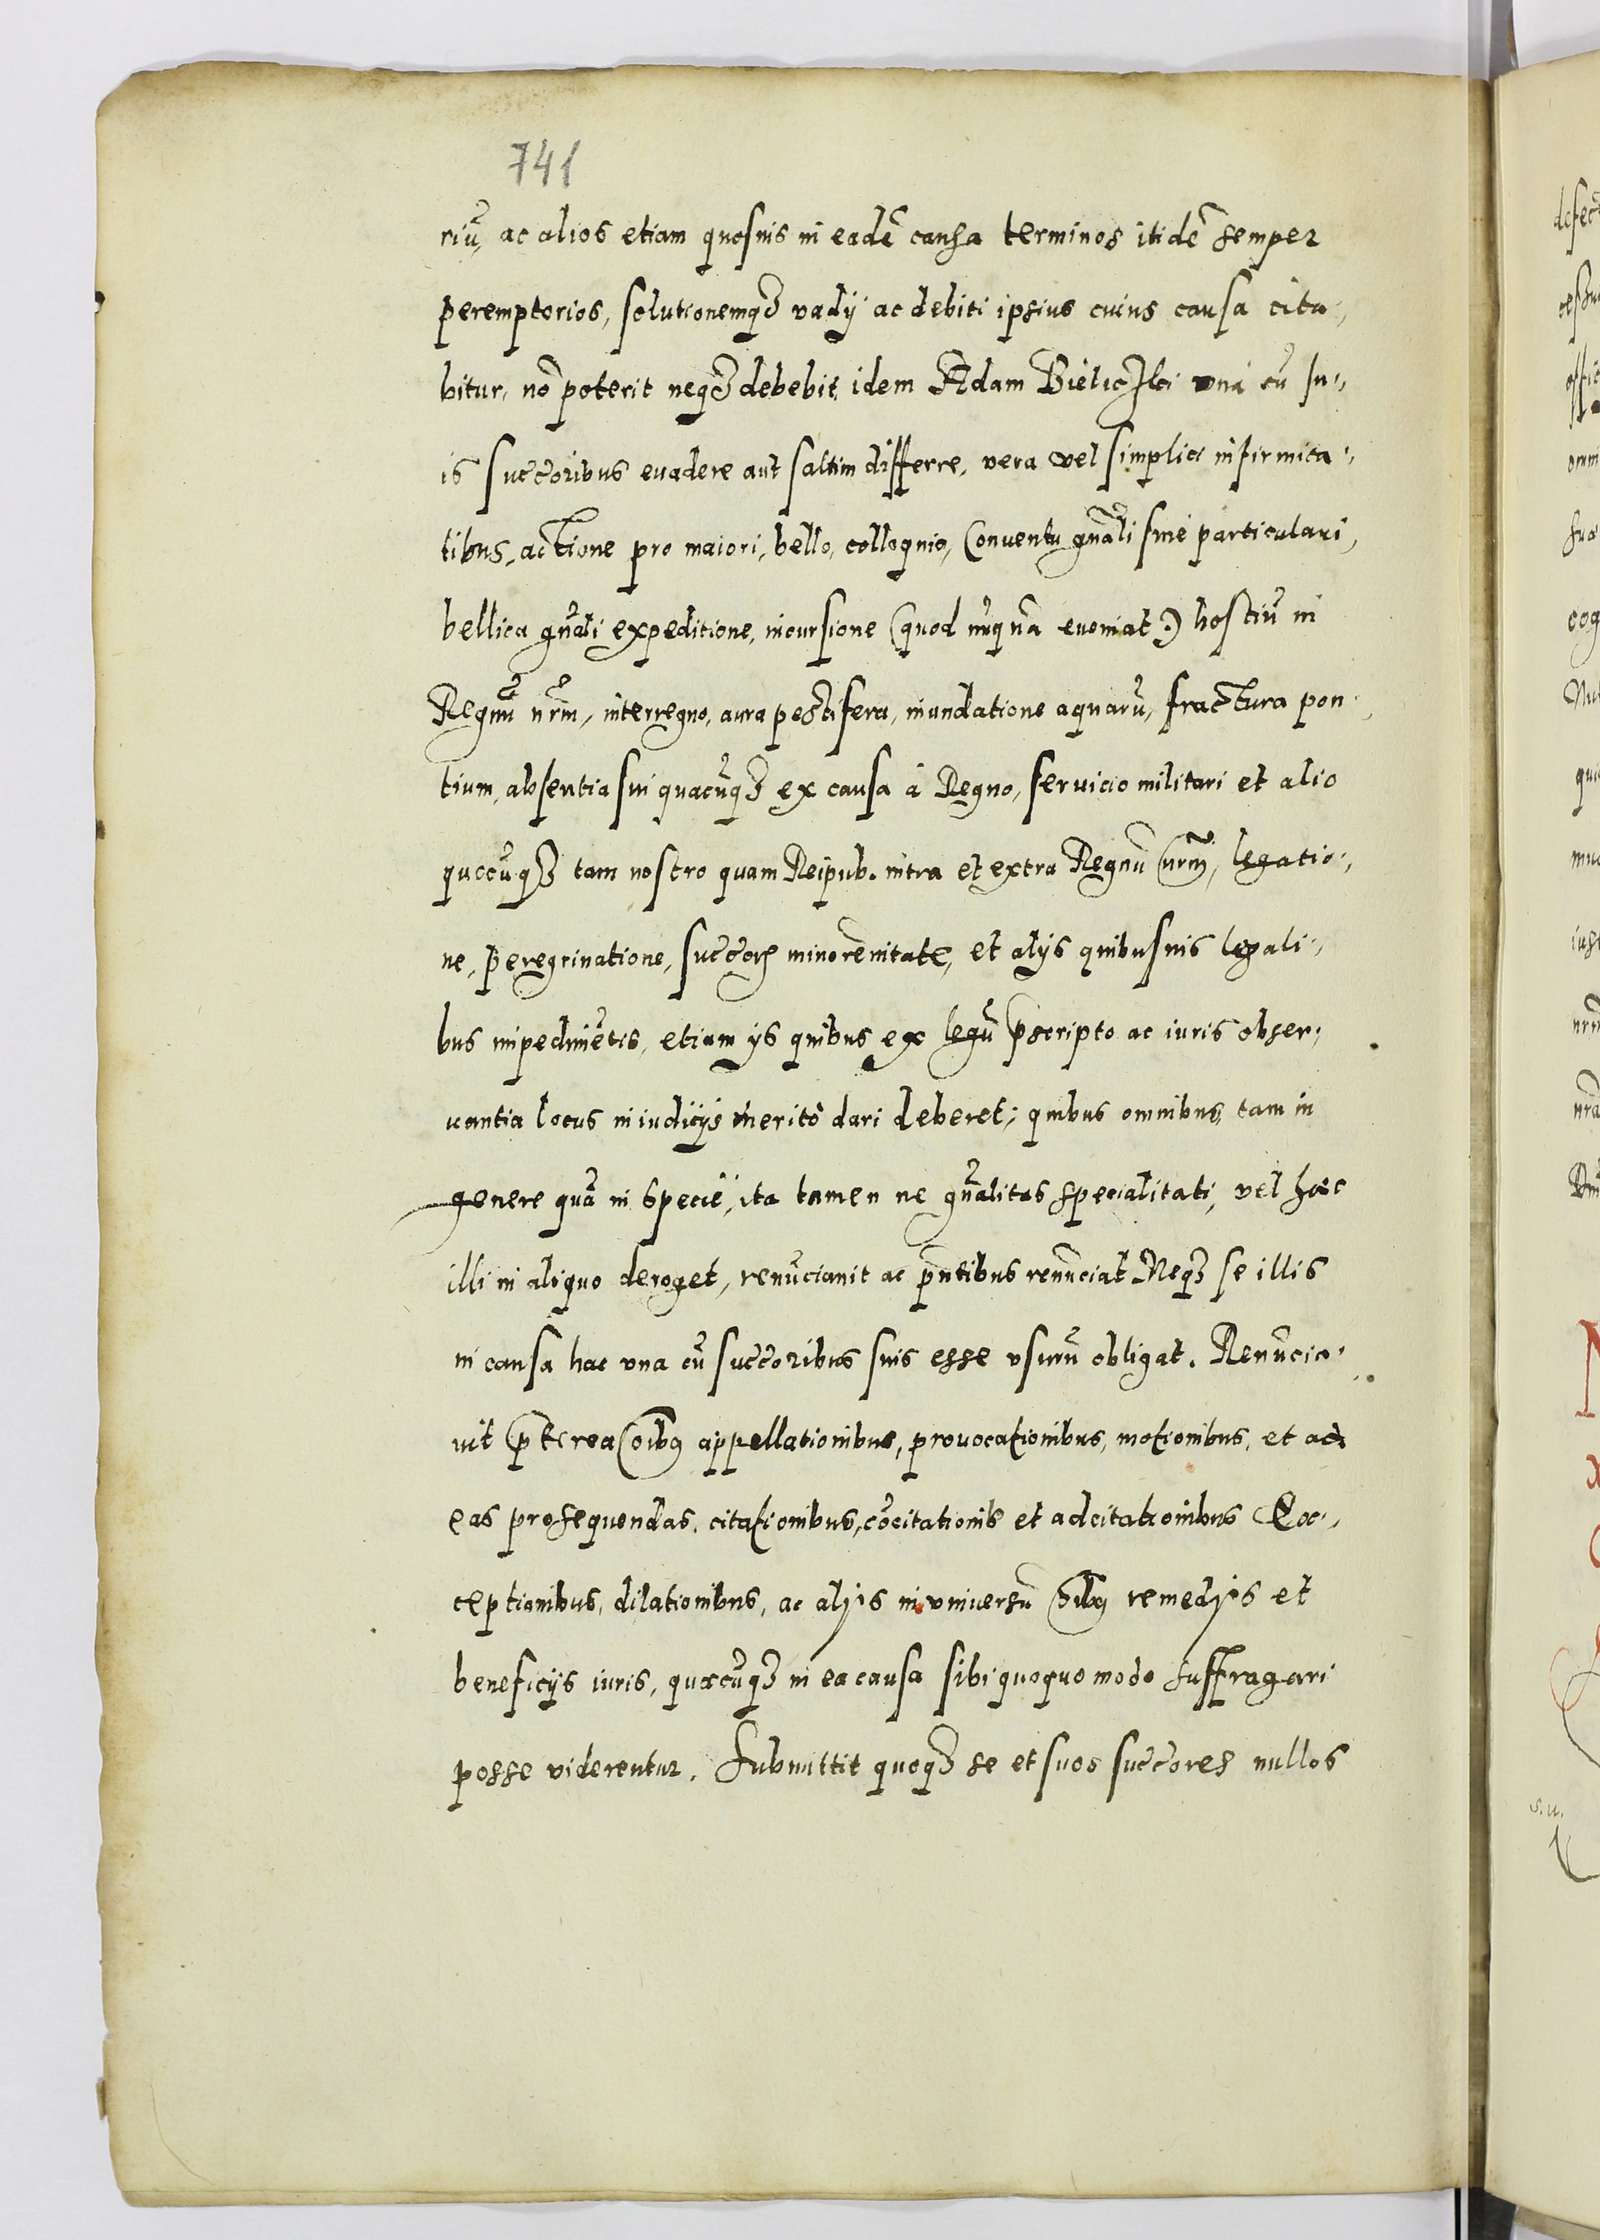 741
riū, ac alios etiam quosuis in eadē causa terminos itidē semper
peremptorios, solutionemq3 vadij ac debiti ipsius cuius causa cita-,
bitur, nō poterit neq3 debebit idem Adam Bieliczki vnà cū su-,
is succoribus euadere aut saltim differre, vera vel simplici infirmita-,
tibus, actione pro maiori, bello, colloquio, Conuentu gnāli siue particulari,
bellica gnāli expeditione, incursione (quod nūqnā eueniat) hostiū in
Regnū nrm̄, interregno, aura pestifera, inundatione aquarū, fractura pon-,
tium, absentia sui quacūq3 ex causa à Regno, seruicio militari et alio
quocūq3 tam nostro quam Reipub. intra et extra Regnū nrm̄, legatio-,
ne, peregrinatione, succorū minorennitate, et alijs quibusuis legali-,
bus impedimētis, etiam ijs quibus ex legū p̄scripto ac iuris obser-,
uantia locus in iudicijs meritò dari deberet; quibus omnibus, tam in
genere quā in specie, ita tamen ne gnālitas specialitati, vel haec
illi in aliquo deroget, renūciauit ac pn̄tibus renunciat Neq3 se illis
in causa hac vna cū succoribus suis esse vsurū obligat. Renūcia-,
uit p̄terea oībq appellationibus, prouocationibus, motionibus, et ad
eas prosequendas, citationibus, cōcitationib et adcitationibus Exc-,
ceptionibus, dilationibus, ac alijs in vniuersū oībq remedijs et
beneficijs iuris, quaecūq3 in ea causa sibi quoquo modo suffragari
posse viderentur. Submittit quoq3 se et suos succores nullos